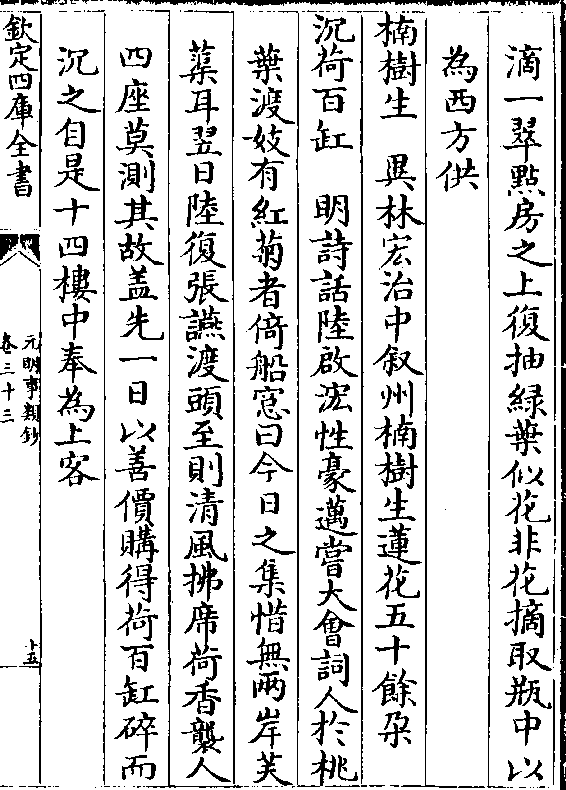 滴一翠點房之上復抽緑葉似花非花摘取瓶中以
為西方供
楠樹生　異林宏治中叙州楠樹生蓮花五十餘朶
沉荷百缸　明詩話陸啟浤性豪邁嘗大會詞人於桃
葉渡妓有紅菊者倚船窓曰今日之集惜無兩岸芙
蕖耳翌日陸復張讌渡頭至則清風拂席荷香襲人
四座莫測其故盖先一日以善價購得荷百缸碎而
沉之自是十四樓中奉為上客
欽定四庫全書
元明事類鈔
卷三十三
十五